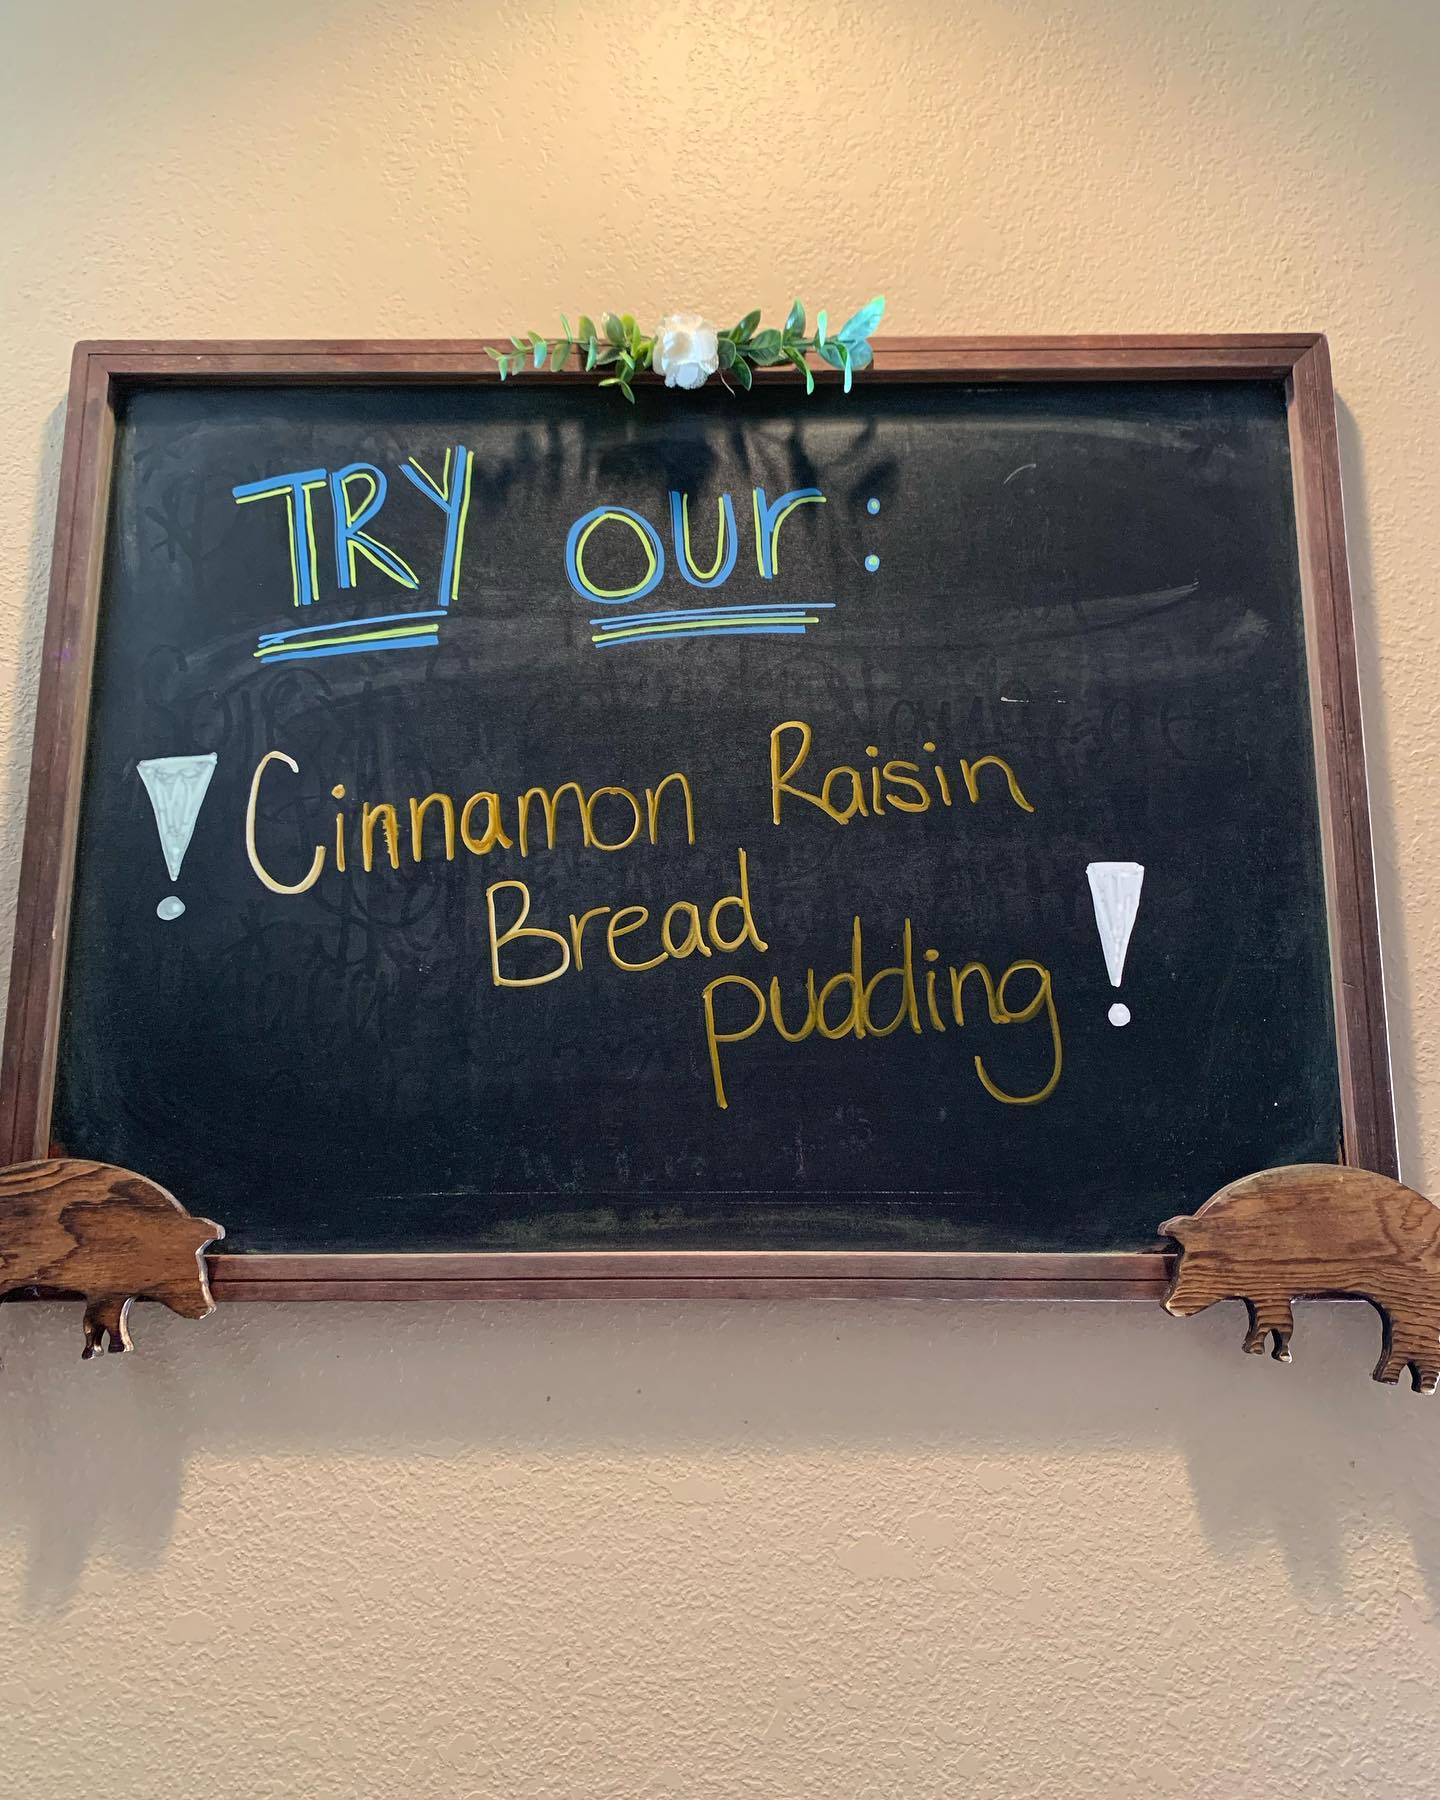 TRY our:
! Cinnamon Raisin
Bread
pudding !